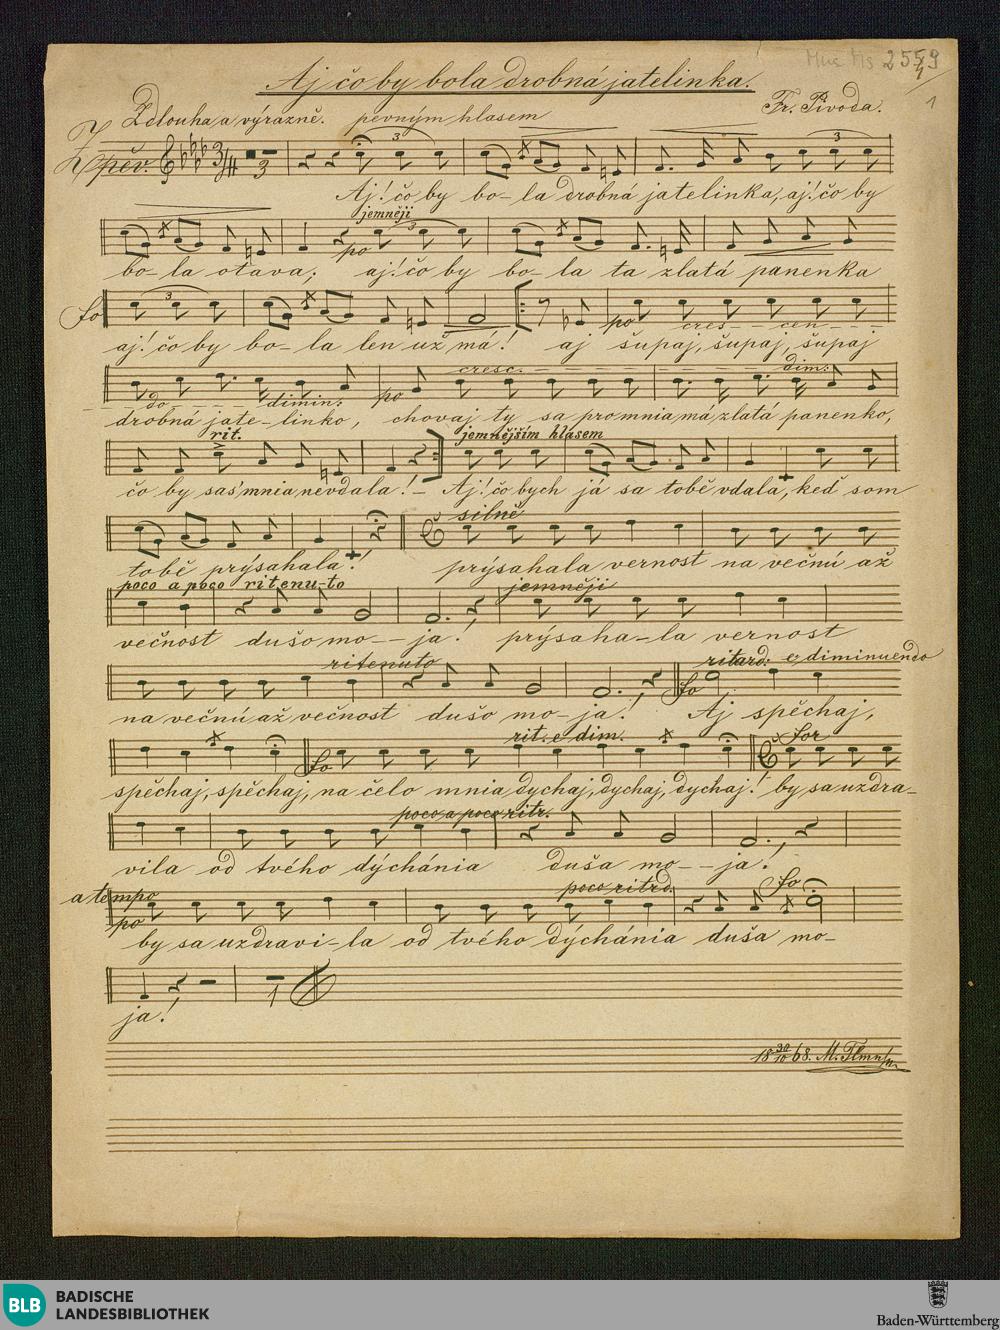 Mus Ms 2559
1
Aj čo by bola drobná jatelinka.
Zdlouha a výrazně. pevným hlasem Fr. Pivoda.
Zpěv. 3/4 3 3 3
Aj! čo by bo-la drobná jatelinka, aj! čo by
jemněji
po 3
bo-la otava; aj! čo by bo-la ta zlatá panenka
fo 3 po cres - cen -
aj! čo by bo-la len už má! aj šupaj, šupaj, šupaj
do dimin: po cresc. dim:
drobná jate-linko, chovaj ty sa pro mnia má zlatá panenko,
rit. jemnějším hlasem
čo by sas' mnia nevdala! - Aj! čo bych já sa tobě vdala, keď som
silně
tobě prýsahala! prýsahala vernost na večnú až
poco a poco ritenu-to jemněji
večnost dušo mo--ja! prýsaha-la vernost
ritenuto fo ritard: e diminuendo
na večnú až večnost dušo mo-ja! Aj spěchaj,
fo rit. e dim. for
spěchaj, spěchaj, na čelo mnia dychaj, dychaj, dychaj! by sa uzdra-
poco a poco ritr.
vila od tvého dýchánia duša mo--ja!
a tempo
po poco ritrd. fo
by sa uzdravi-la od tvého dýchánia duša mo-
1
ja!
18 30/10 68. M.
BLB BADISCHE
LANDESBIBLIOTHEK
Baden-Württemberg